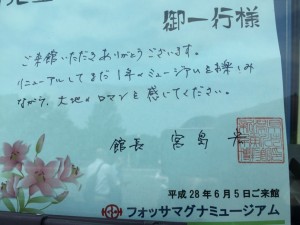 御一行様
ご来館いただきありがとうございます。
リニューアルしてまだ1年。ミュージアムを楽しみ
ながら、大地のロマンを感じてください。
館長 宮島 宏
平成28年6月5日ご来館
フォッサマグナミュージアム